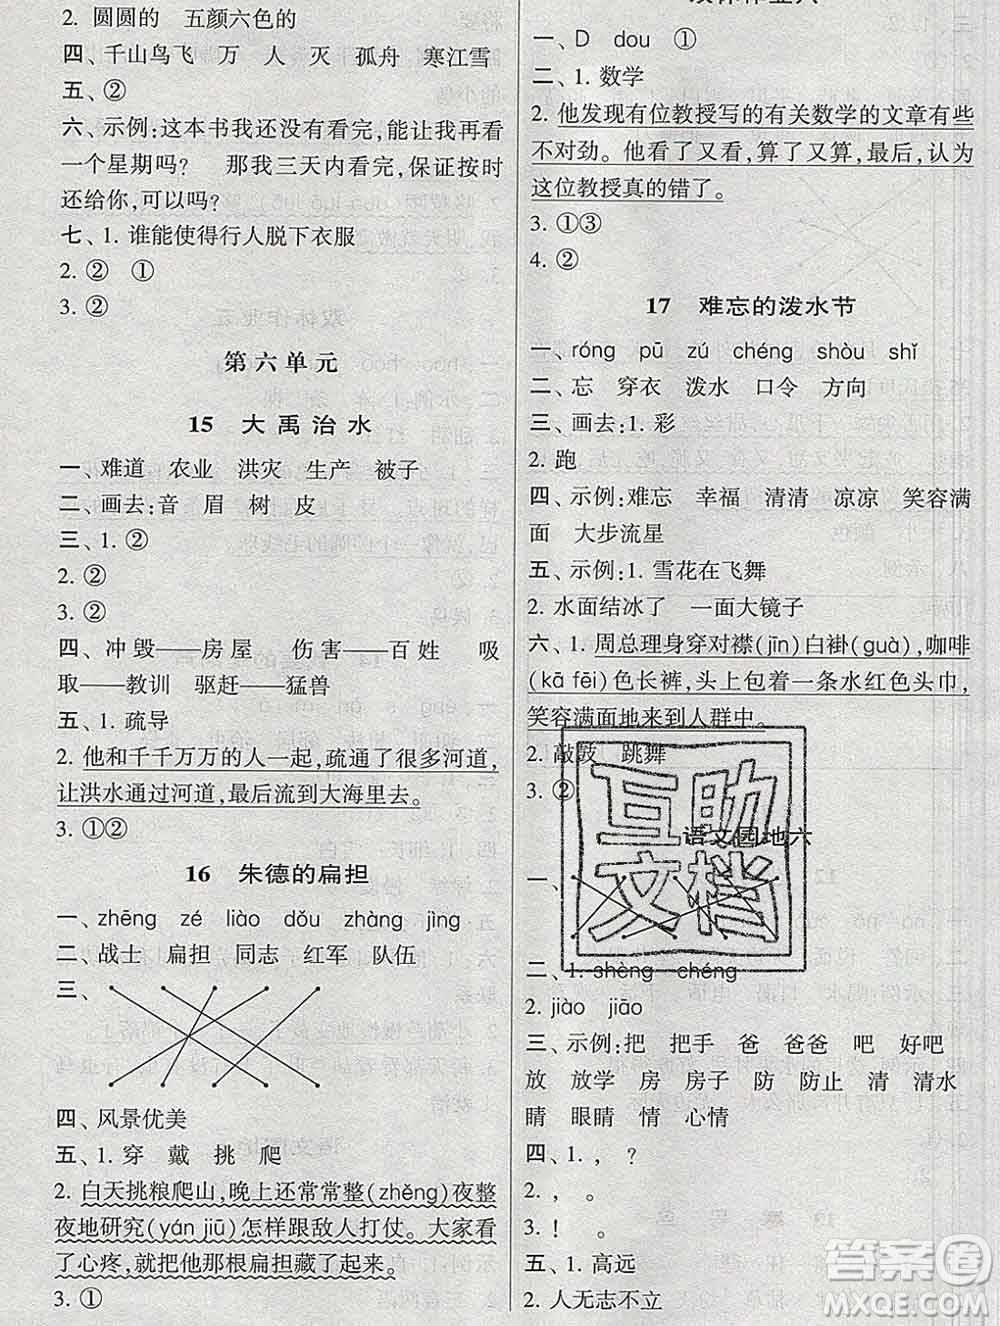 2. 圆圆的　五颜六色的
四、千山鸟飞　万　人　灭　孤舟　寒江雪
五、②
六、示例:这本书我还没有看完,能让我再看
一个星期吗?　那我三天内看完,保证按时
还给你,可以吗?
七、1. 谁能使得行人脱下衣服
2. ②　①
3. ②
第六单元
15　大禹治水
一、难道　农业　洪灾　生产　被子
二、画去:音　眉　树　皮
三、1. ②
2. ②
3. ②
四、冲毁——房屋　伤害——百姓　吸
取——教训　驱赶——猛兽
五、1. 疏导
2. 他和千千万万的人一起,疏通了很多河道,
让洪水通过河道,最后流到大海里去。
3. ①②
16　朱德的扁担
一、zhēng　zé　liào　dǒu　zhàng　jìng
二、战士　扁担　同志　红军　队伍
三、
四、风景优美
五、1. 穿　戴　挑　爬
2. 白天挑粮爬山,晚上还常常整(zhěng)夜整
夜地研究(yán jiū)怎样跟敌人打仗。大家看
了心疼,就把他那根扁担藏了起来。
3. ①
一、D　dou　①
二、1. 数学
2. 他发现有位教授写的有关数学的文章有些
不对劲。他看了又看,算了又算,最后,认为
这位教授真的错了。
3. ①③
4. ②
17　难忘的泼水节
一、róng　pū　zú　chéng　shòu　shǐ
二、忘　穿衣　泼水　口令　方向
三、画去:1. 彩
2. 跑
四、示例:难忘　幸福　清清　凉凉　笑容满
面　大步流星
五、示例:1. 雪花在飞舞
2. 水面结冰了　一面大镜子
六、1. 周总理身穿对襟(jīn)白褂(guà),咖啡
(kā fēi)色长裤,头上包着一条水红色头巾,
笑容满面地来到人群中。
2. 敲鼓　跳舞
3. ②
语文园地六
一、
二、1. shèng　chéng
2. jiào　jiāo
三、示例:把　把手　爸　爸爸　吧　好吧
放　放学　房　房子　防　防止　清　清水
睛　眼睛　情　心情
四、1. ，　?
2. ，　。
3. !　。　。
五、1. 高远
2. 人无志不立
互助
文档
答案圈
MXQE.COM